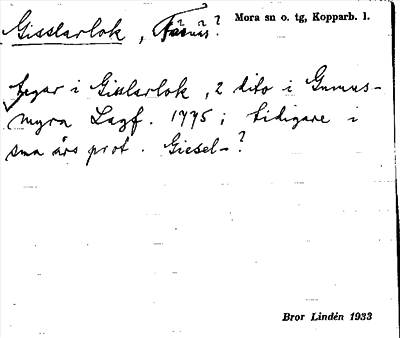 Gisslarlok, Färnäs? Mora sn o. tg, Kopparb. l.
Ägar i Gisslarlok, 2 dito i Gumus-
myra Lagf. 1775; tidigare i
sma års prot. Giesel-?
Bror Lindén 1933